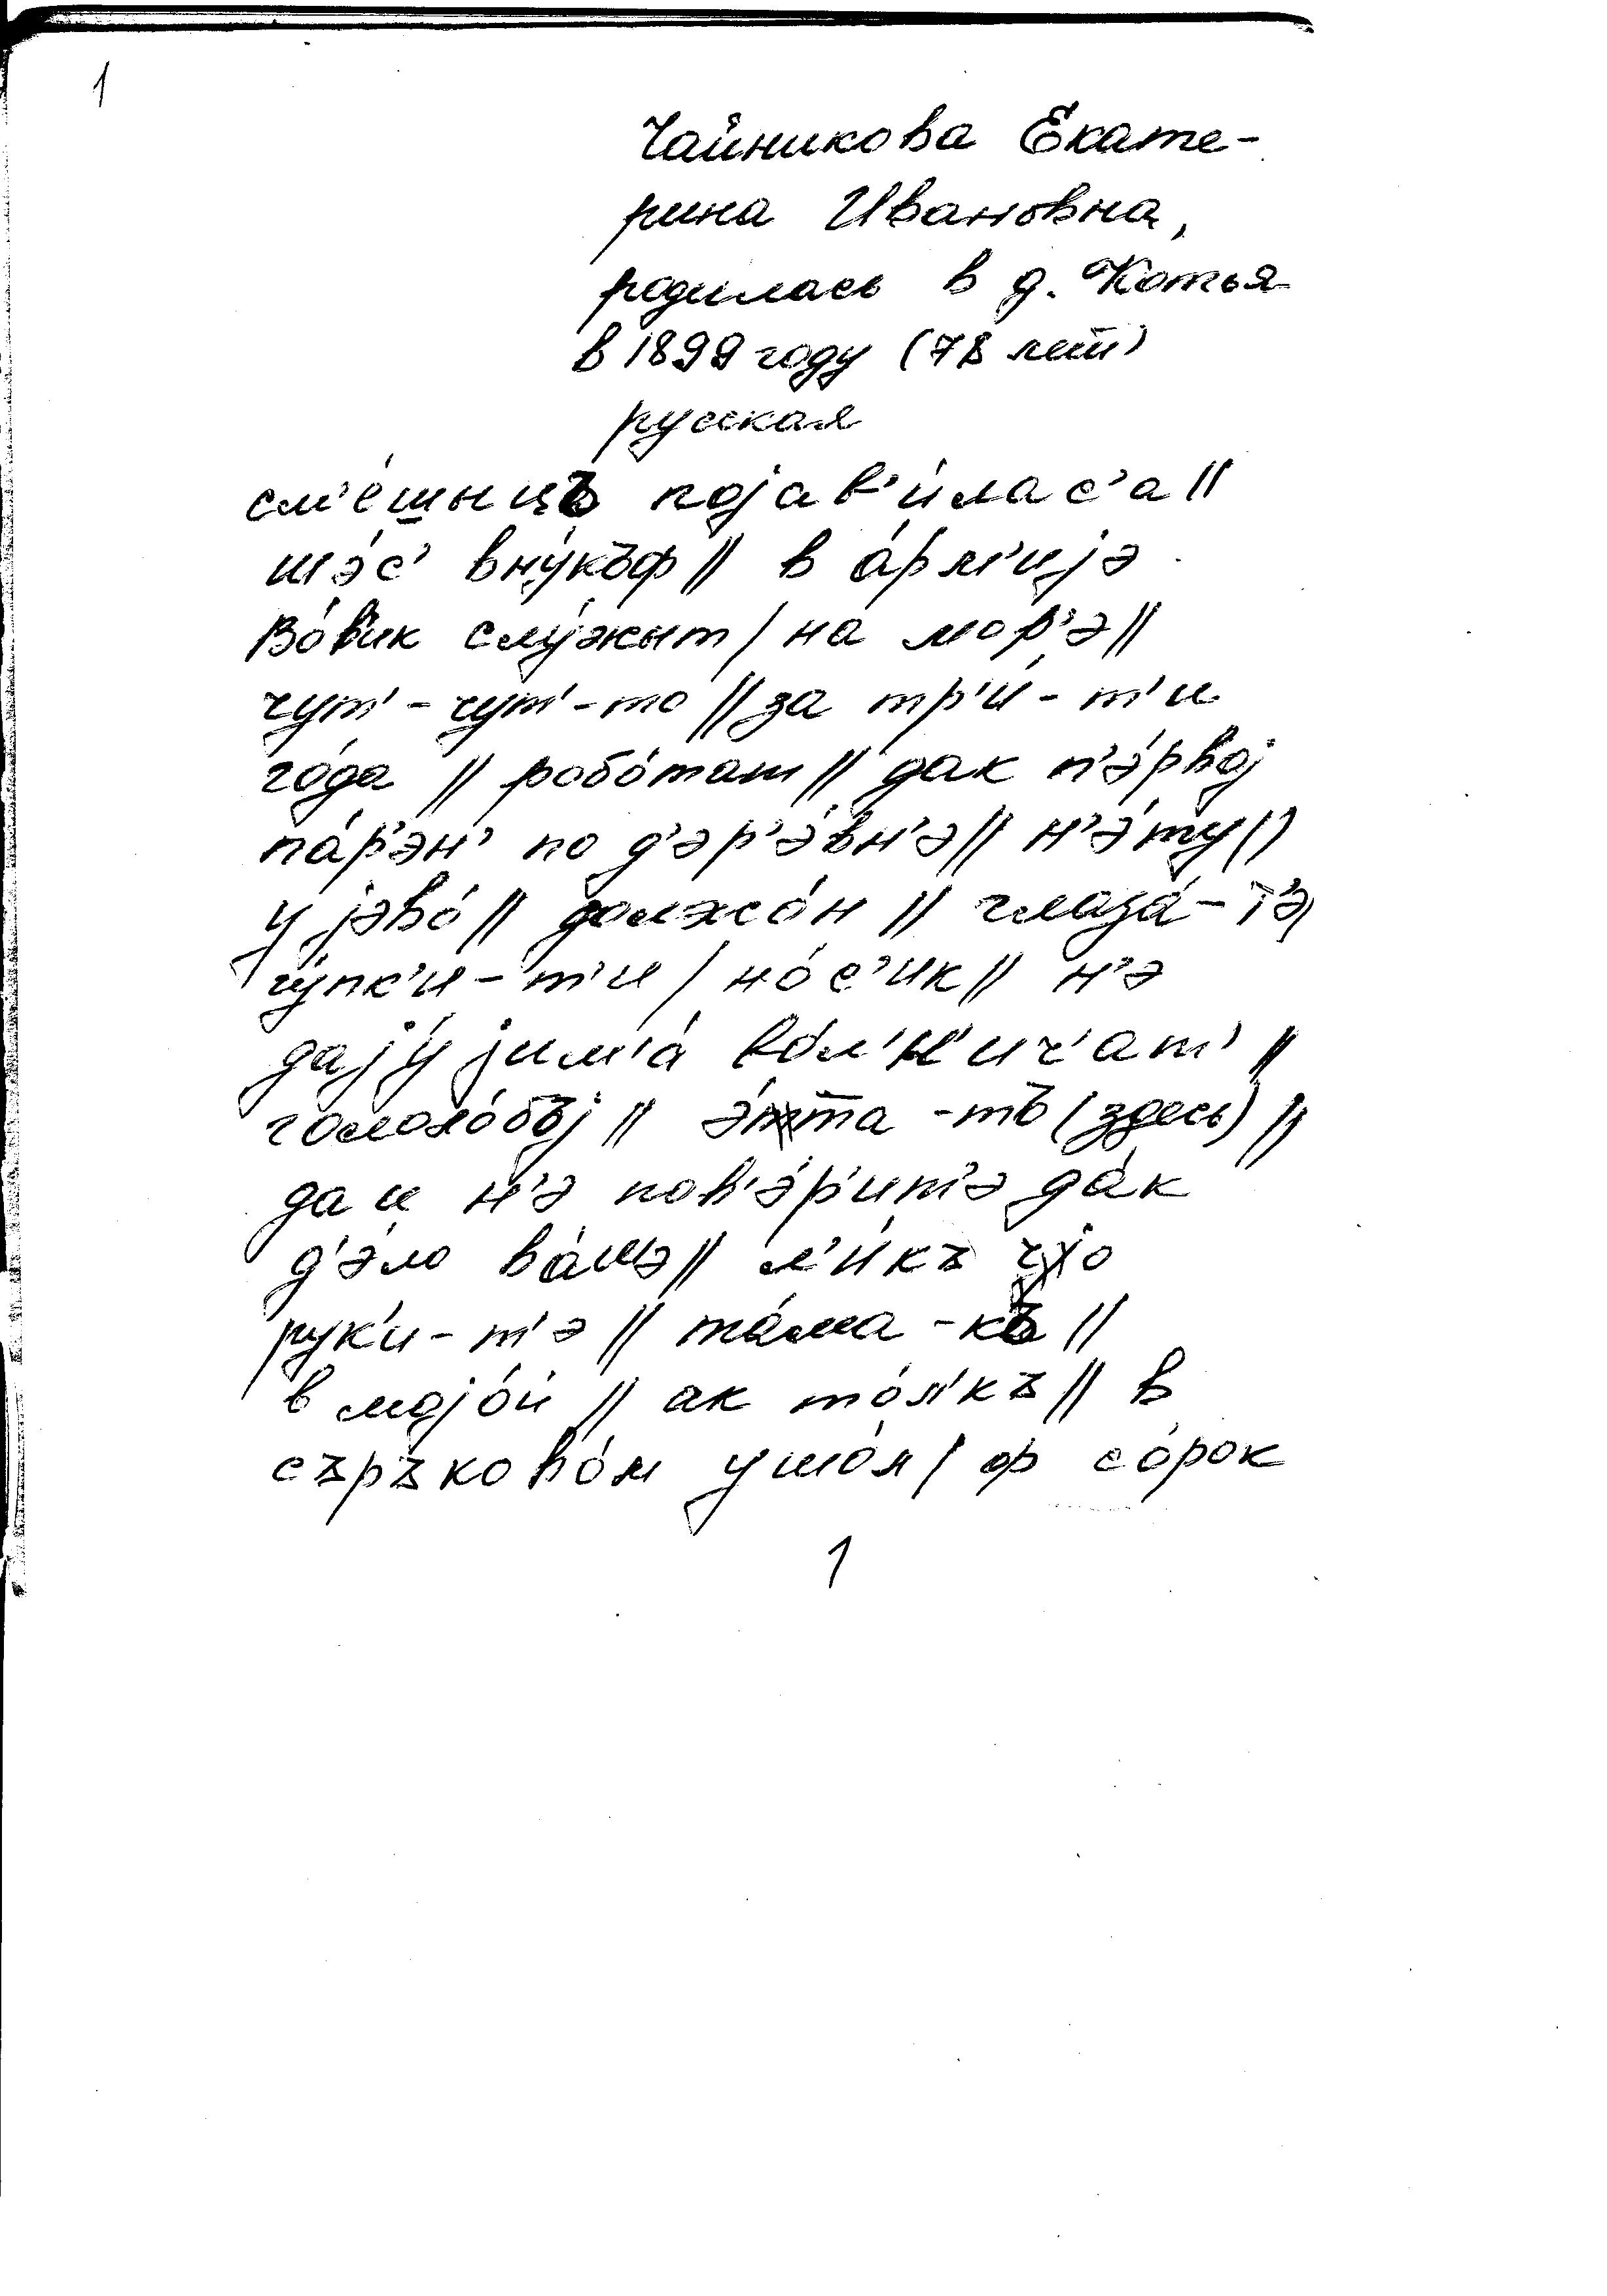 1
Чайникова Екате-
рина Ивановна,
родилась в д. Котья
в 1899 году (78 лет)
русская
см'е́шыцъ појав'и́лас'а ||
шэ́с' вну́къф || в а́рм'ијэ
Во́вик слу́жыт / на мор'э ||
чут' - чут' - то || за тр'и́ - т'и
го́да || робо́таш || дак п'э́рвој
па́р'эн' по д'эр'э́вн'э || н'э́ту ||
у јэво́ || должо́н || глаза́ - т'э /
гу́пк'и - т'и / но́с'ик || н'э
дају́ јим'а́ во́л'н'ич'ат' ||
гололо́бъј || э́тта - тъ (здесь) ||
да и н'э пов'э́р'ит'э да́к
д'э́ло ва́шэ || л'и́къ чјо
рук'и - т'э || та́ма - къ ||
в мојо́й || ак то́л'къ || в
съръково́м ушо́л / ф со́рок
1